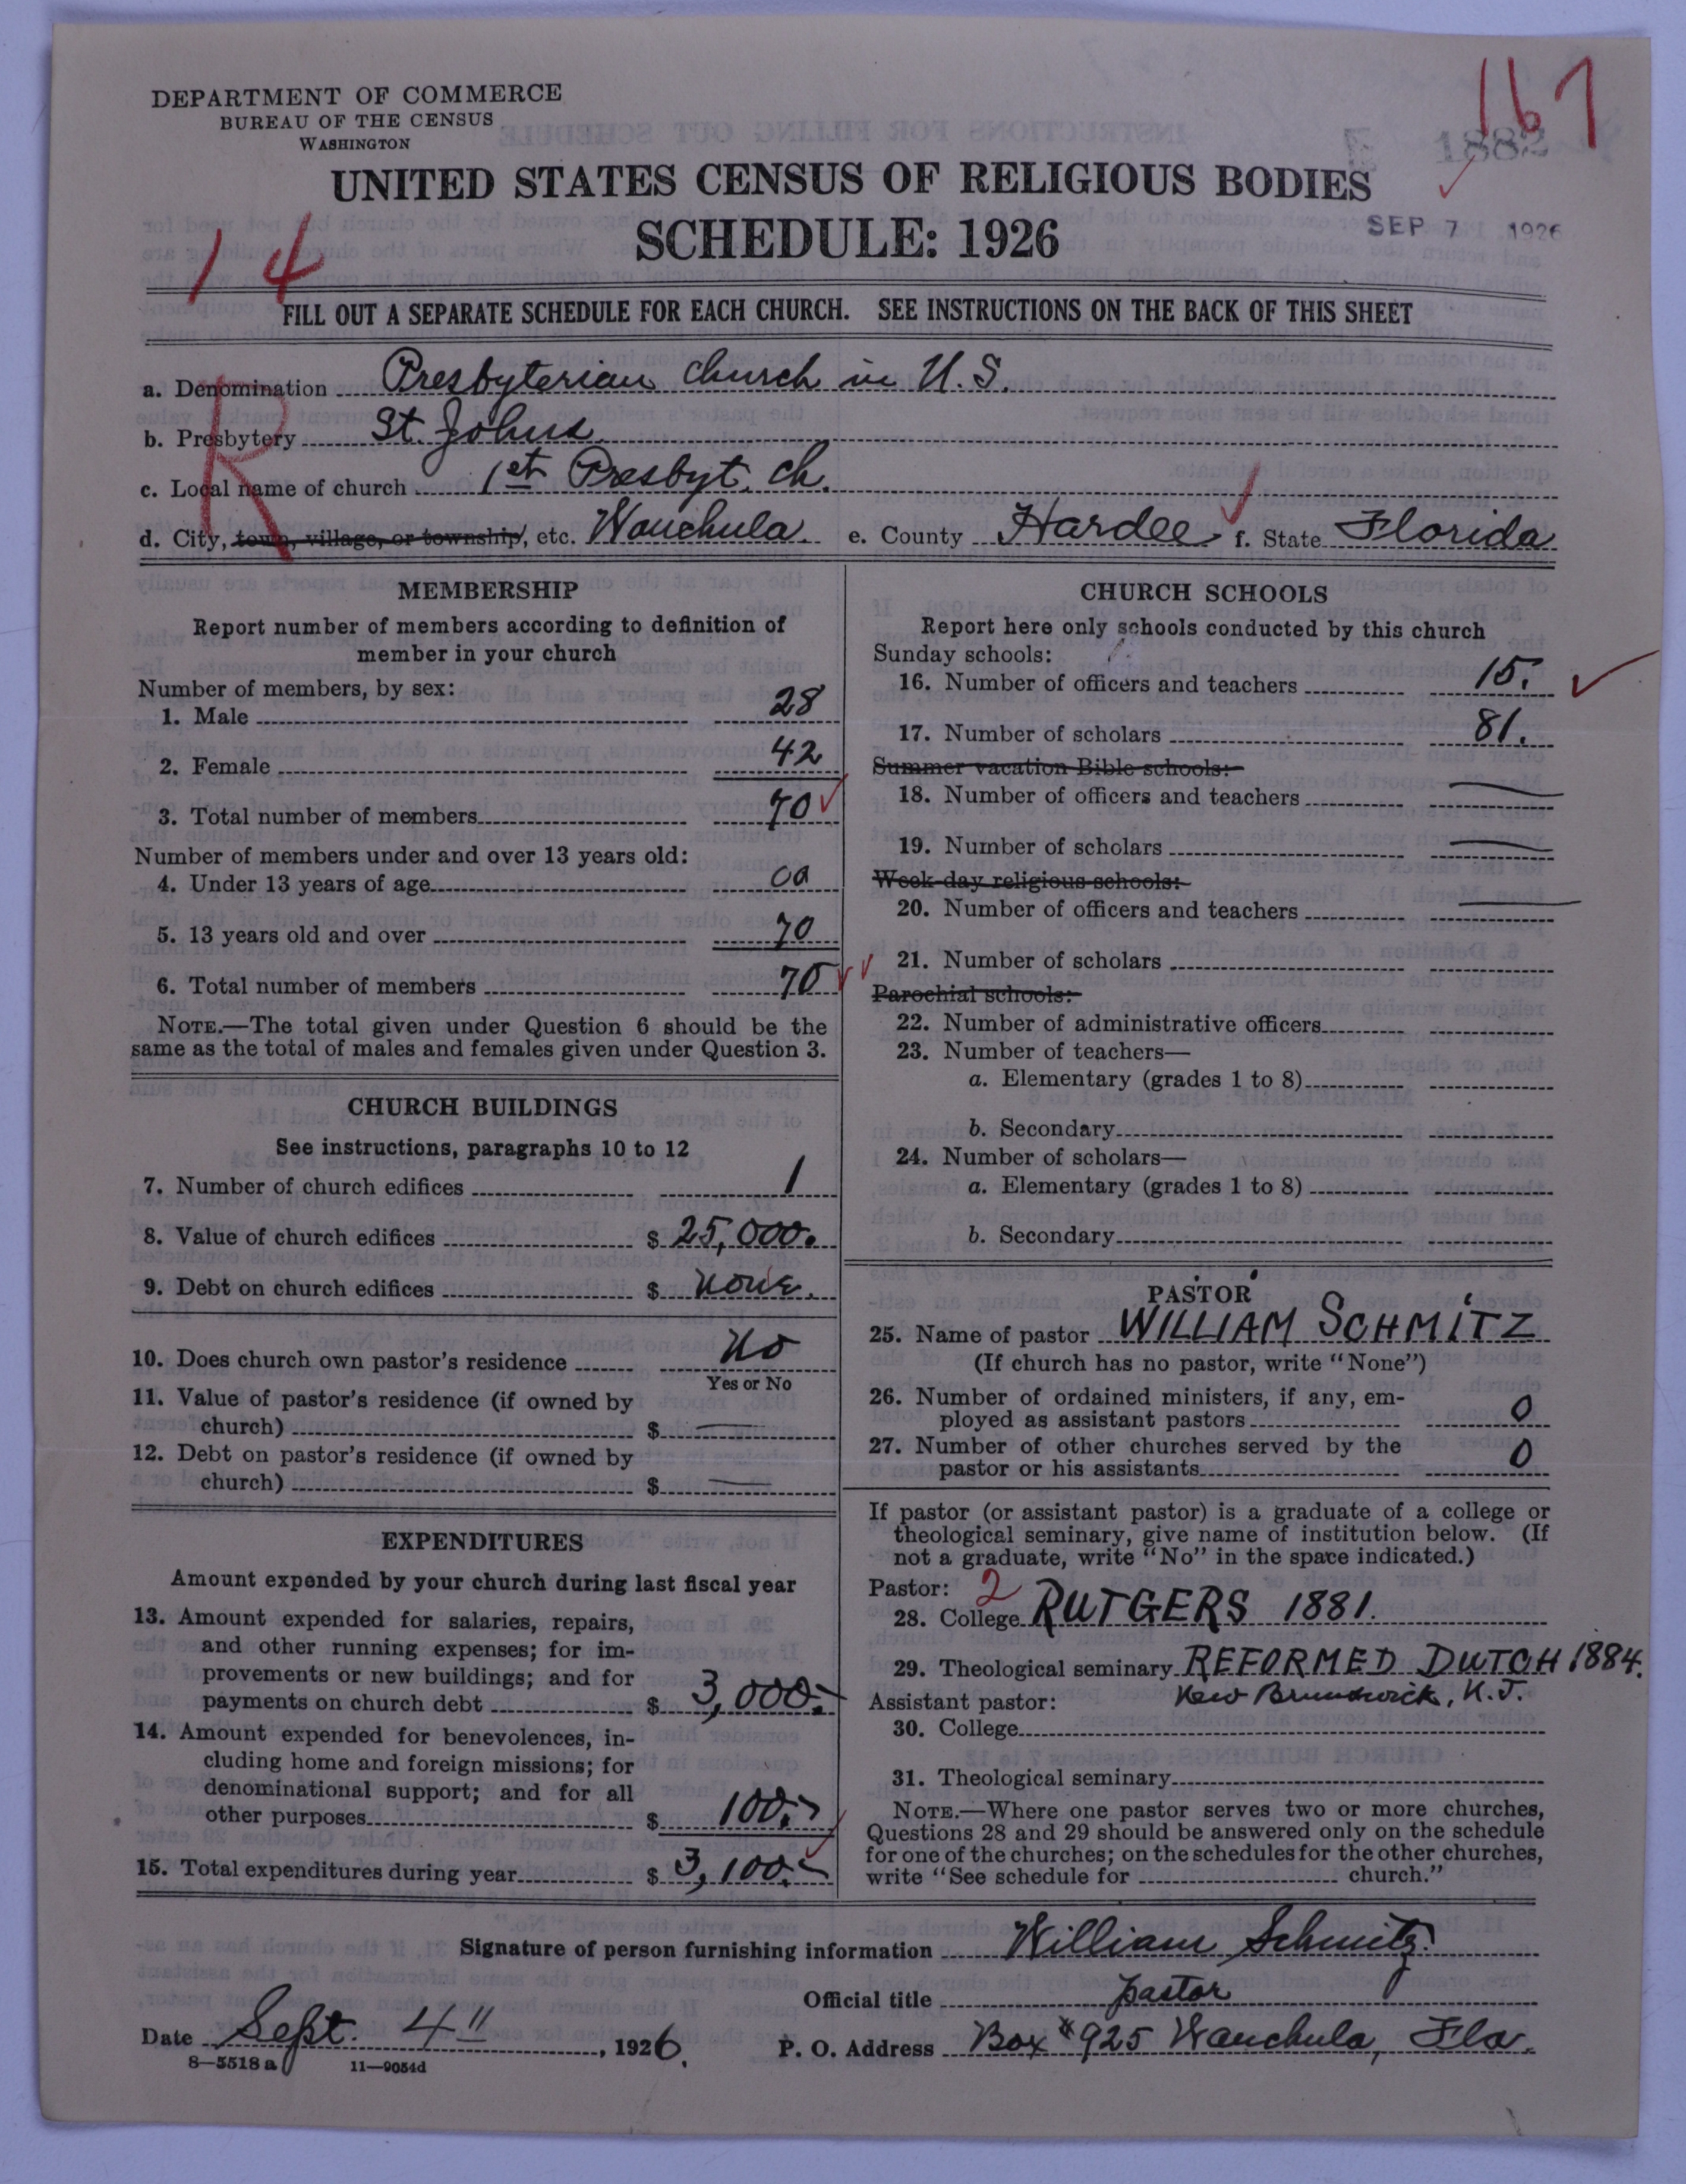 DEPARTMENT OF COMMERCE
BUREAU OF THE CENSUS
WASHINGTON
167
1882
UNITED STATES CENSUS OF RELIGIOUS BODIES
SCHEDULE: 1926
SEP 7 1926
14
FILL OUT A SEPARATE SCHEDULE FOR EACH CHURCH. SEE INSTRUCTIONS ON THE BACK OF THIS SHEET
R
a. Denomination Presbyterian church in U.S.
b. Presbytery St. Johns
c. Local name of church 1st Presbyt. ch.
d. City, town, village, or township, etc. Wauchula. e. County Hardee f. State Florida
MEMBERSHIP
Report number of members according to definition of
member in your church
Number of members, by sex:
1. Male 28
2. Female 42
3. Total number of members 70
Number of members under and over 13 years old:
4. Under 13 years of age 00
5. 13 years old and over 70
6. Total number of members 70
NOTE.—The total given under Question 6 should be the
same as the total of males and females given under Question 3.
CHURCH BUILDINGS
See instructions, paragraphs 10 to 12
7. Number of church edifices 1
8. Value of church edifices $ 25,000.
9. Debt on church edifices $ none.
10. Does church own pastor's residence No
Yes or No
11. Value of pastor's residence (if owned by
church) $ —
12. Debt on pastor's residence (if owned by
church) $ —
EXPENDITURES
Amount expended by your church during last fiscal year
13. Amount expended for salaries, repairs,
and other running expenses; for im-
provements or new buildings; and for
payments on church debt $ 3,000.-
14. Amount expended for benevolences, in-
cluding home and foreign missions; for
denominational support; and for all
other purposes $ 100.-
15. Total expenditures during year $ 3,100.-
CHURCH SCHOOLS
Report here only schools conducted by this church
Sunday schools:
16. Number of officers and teachers 15.
17. Number of scholars 81.
Summer vacation Bible schools:
18. Number of officers and teachers —
19. Number of scholars —
Week-day religious schools:
20. Number of officers and teachers —
21. Number of scholars
Parochial schools:
22. Number of administrative officers
23. Number of teachers—
a. Elementary (grades 1 to 8)
b. Secondary
24. Number of scholars—
a. Elementary (grades 1 to 8)
b. Secondary
PASTOR
25. Name of pastor WILLIAM SCHMITZ
(If church has no pastor, write "None")
26. Number of ordained ministers, if any, em-
ployed as assistant pastors 0
27. Number of other churches served by the
pastor or his assistants 0
If pastor (or assistant pastor) is a graduate of a college or
theological seminary, give name of institution below. (If
not a graduate, write "No" in the space indicated.)
Pastor: 2
28. College RUTGERS 1881.
29. Theological seminary REFORMED DUTCH 1884.
Assistant pastor: New Brunswick, N.J.
30. College
31. Theological seminary
NOTE.—Where one pastor serves two or more churches,
Questions 28 and 29 should be answered only on the schedule
for one of the churches; on the schedules for the other churches,
write "See schedule for church."
Signature of person furnishing information William Schmitz
Official title pastor
Date Sept. 4", 1926. P. O. Address Box #925 Wauchula, Fla.
8—5518 a 11—9054d